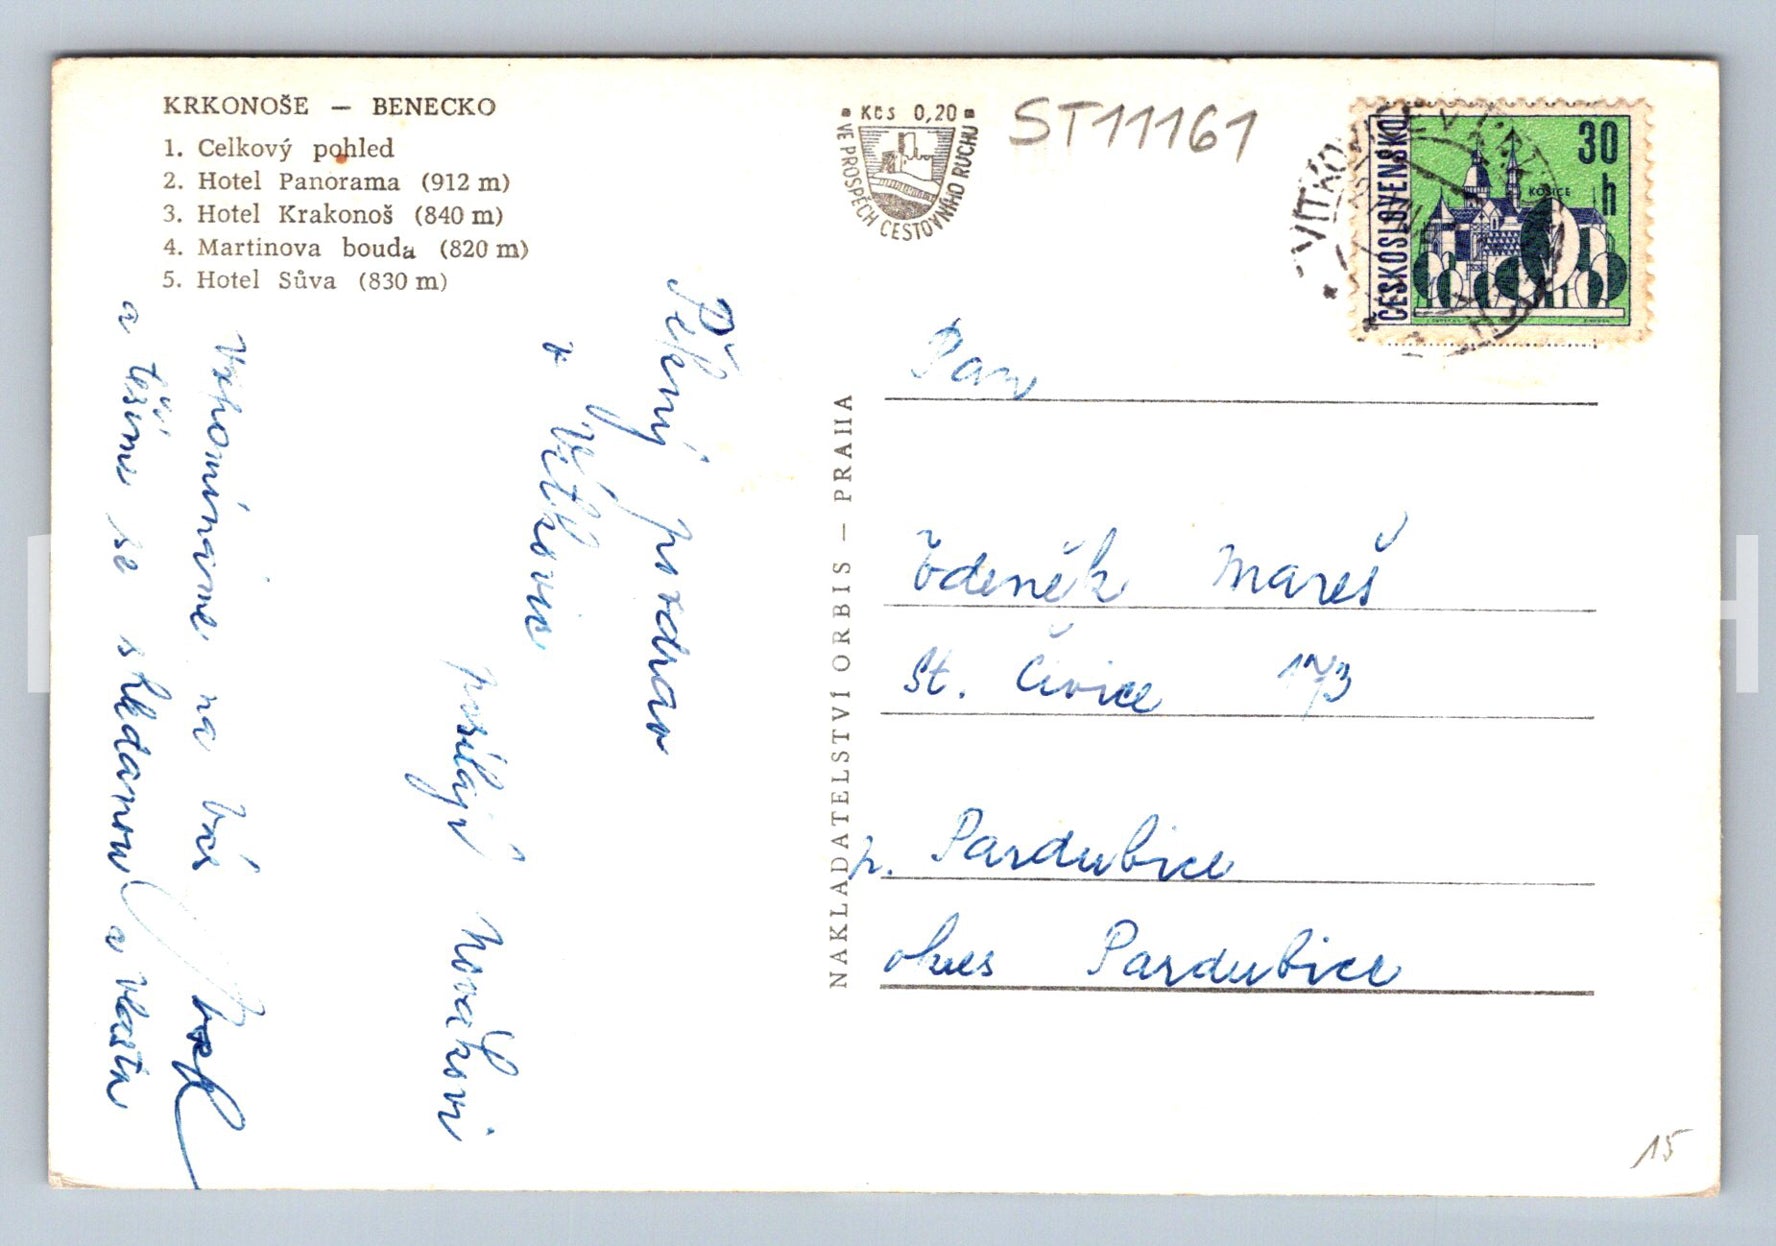 KRKONOŠE — BENECKO
1. Celkový pohled
2. Hotel Panorama (912 m)
3. Hotel Krakonoš (840 m)
4. Martinova bouda (820 m)
5. Hotel Sůva (830 m)
Kčs 0,20
VE PROSPĚCH CESTOVNÍHO RUCHU
ST11161
ČESKOSLOVENSKO
30 h
KOŠICE
VÍTKOVICE V KRK
Pěkný pozdrav
z Vítkovic
posílají Novákovi
Vzpomínáme na Vás
a těšíme se shledanou a Vlasta
NAKLADATELSTVÍ ORBIS — PRAHA
Pan
Zdeněk Mareš
St. Čivice 173
p. Pardubice
okres Pardubice
15